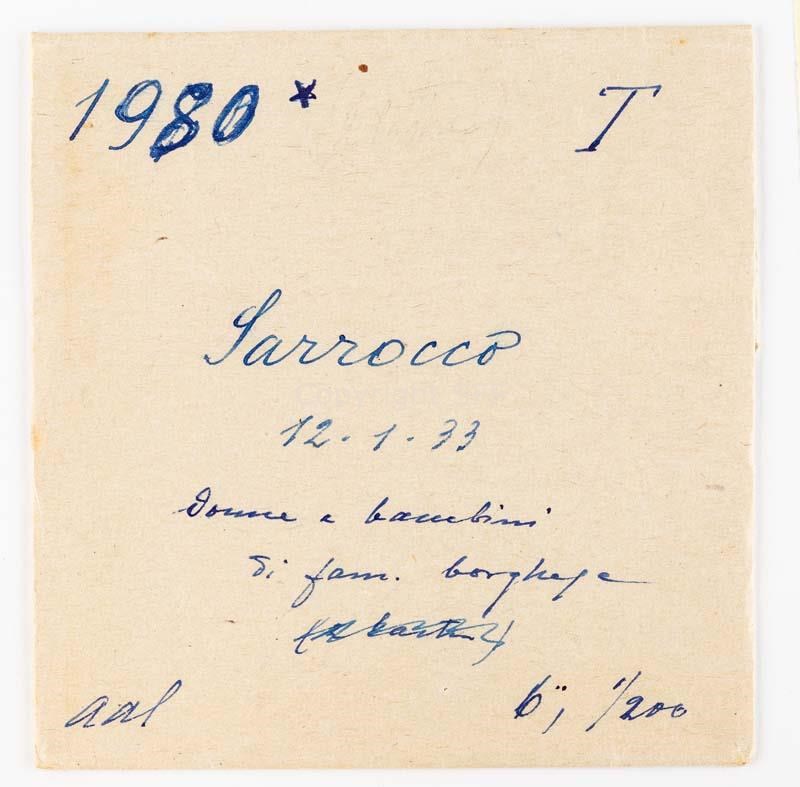 1980 * T
Sarrocco
12.1.33
Donne e bambini
di fam. borghese
aal
6", 1/200